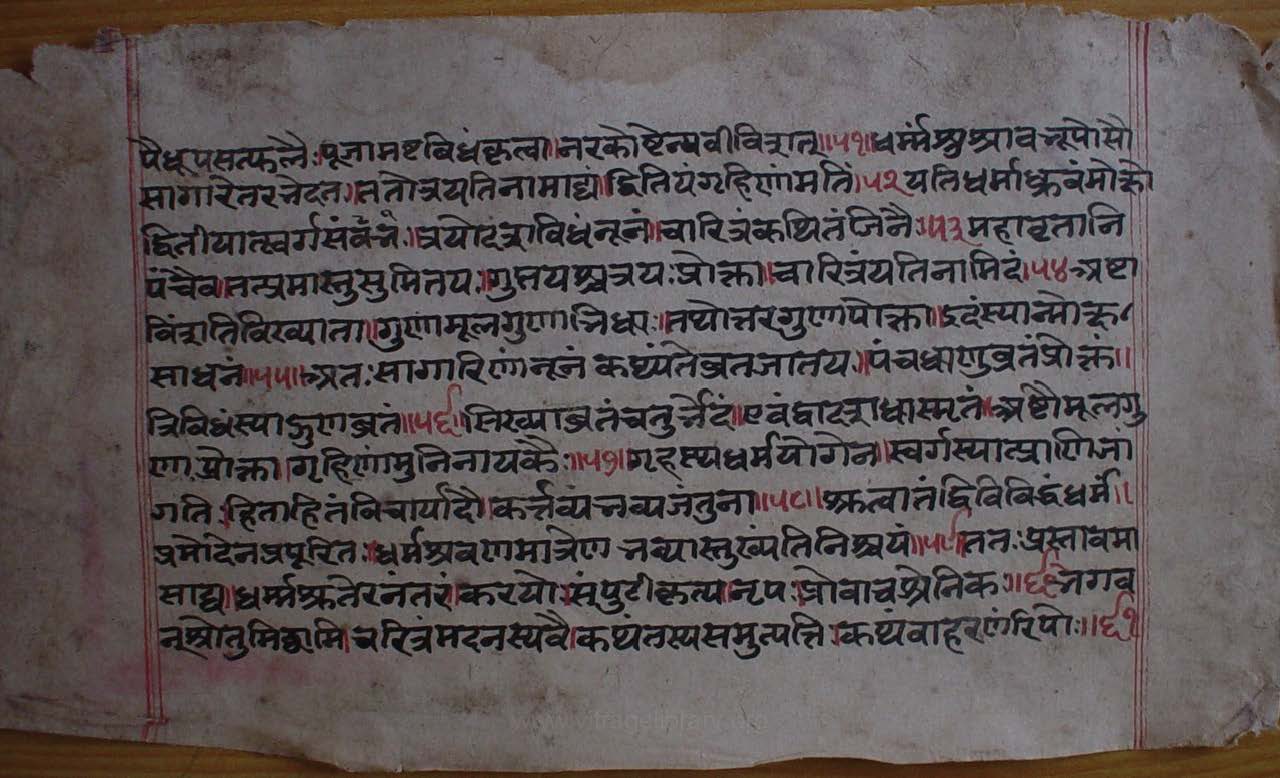 पैधूपसत्फलैः।पूजामष्टविधंकृत्वा।नरकोष्टेन्यवीविशत्॥५१॥धर्म्मंशुश्रावनूपोसौ
सागारेतरभेदत।ततोत्रयतिनामाद्यं।द्वितियंगृहिणंमतं।५२यतिधर्माध्रुवंमोक्षो
द्वितीयात्स्वर्गसंभवं।त्रयोदशविधंनूनं।चारित्रंकथितंजिनैः॥५३महावृतानि
पंचैव।तत्प्रमास्तुसुमितय.।गुप्तयश्चत्रयःप्रोक्ता।चारित्रंयतिनामिदं।५४अष्टा
विंशतिविख्याता।गुणांमूलगुणाभिधाः।तथोत्तरगुणपोक्ता।इदंस्यान्मोक्ष
साधनं॥५५॥अतःसागारिणंनूनंकथ्यंतेव्रतजातय.।पंचधाणुव्रतंप्रोक्तं॥
त्रिविधंस्याद्गुणव्रतं॥५६।सिख्याव्रतंचतुर्भेदं।एवंद्वादशधास्मृतं।अष्टौमूलगु
णाप्रोक्ता।गृहिणांमुनिनायकैः॥५७॥गृहस्यधर्मयोगेन।स्वर्गस्यात्प्राणिनां
गति।हिताहितंविचार्यादौ।कर्त्तव्यंभव्यजंतुना॥५८॥श्रुत्वातंद्विविविद्वंधर्मं।
प्रमोदेनप्रपूरितः।धर्मश्रवणमात्रेणभव्यास्तुख्यंतिनिश्चयं॥५९ततःप्रस्तावमा
साद्य।धर्म्मश्रुतेरनंतरं।करयोःसंपुटीकृत्य।नृप।प्रोवाचश्रेनिक॥६०भगव
न्श्रोतुमिछामि।चरित्रंमदनस्यवै।कथंतस्यसमुत्पत्ति।कथंवाहरणंरिपोः॥६१
www